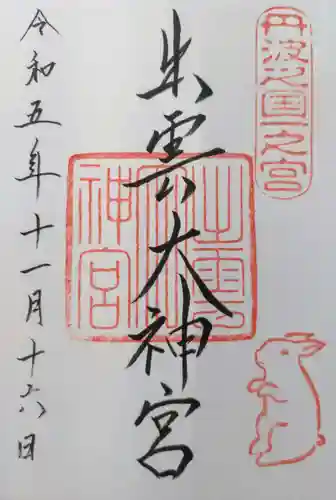 丹波國一之宮
出雲大神宮
出雲大神宮
令和五年十一月十六日